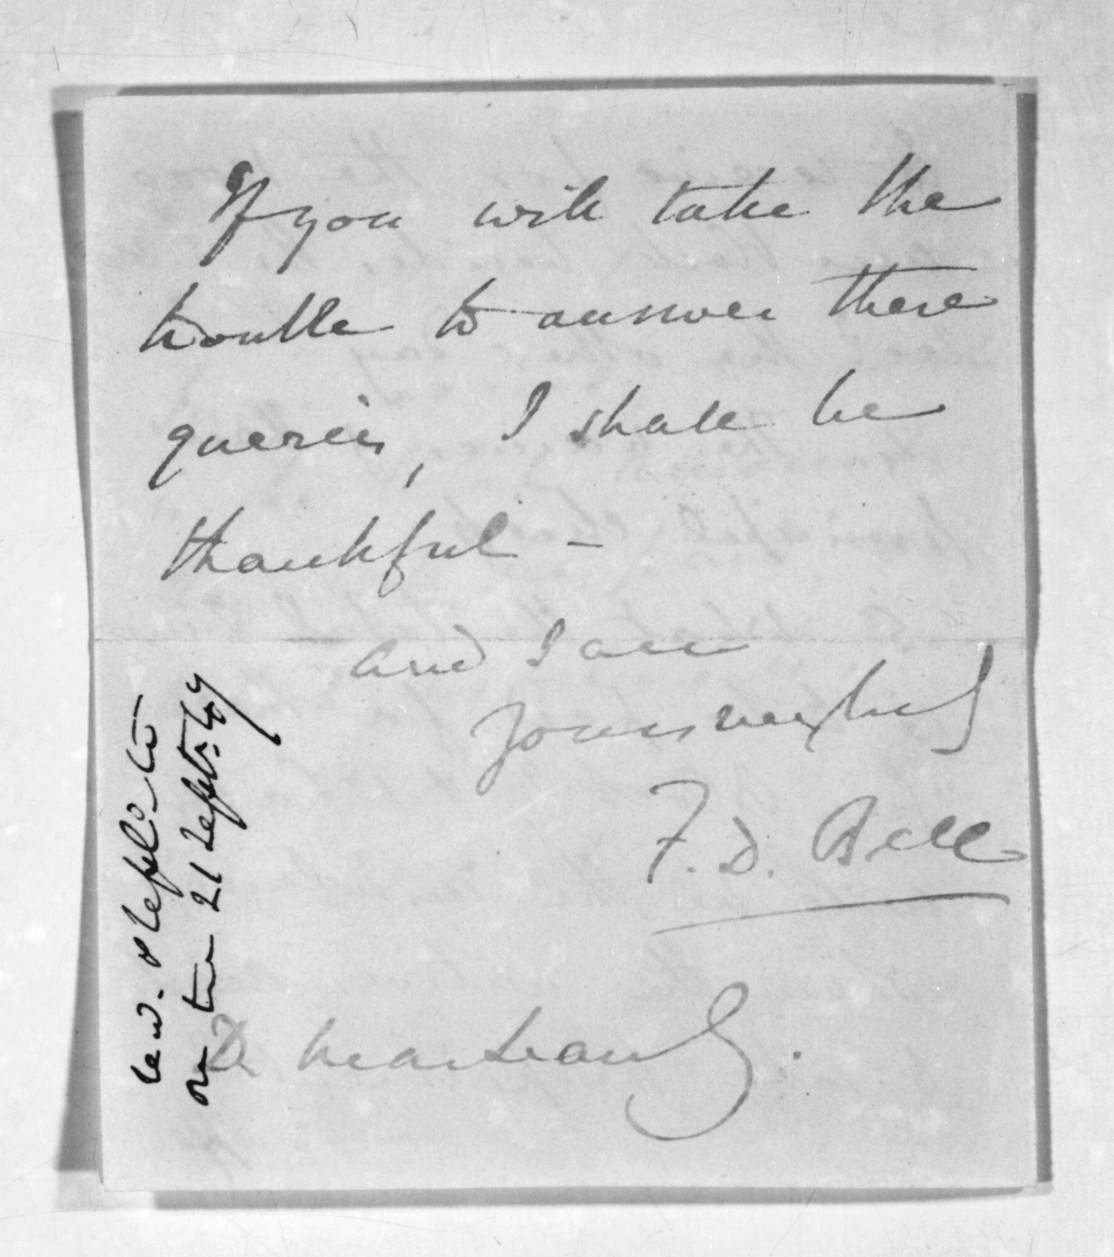 If you will take the
trouble to answer these
queries, I shall be
thankful -
and I am
Yours
F. D. Bell
D
recd. & repld. to
on the 21 Septr. 47